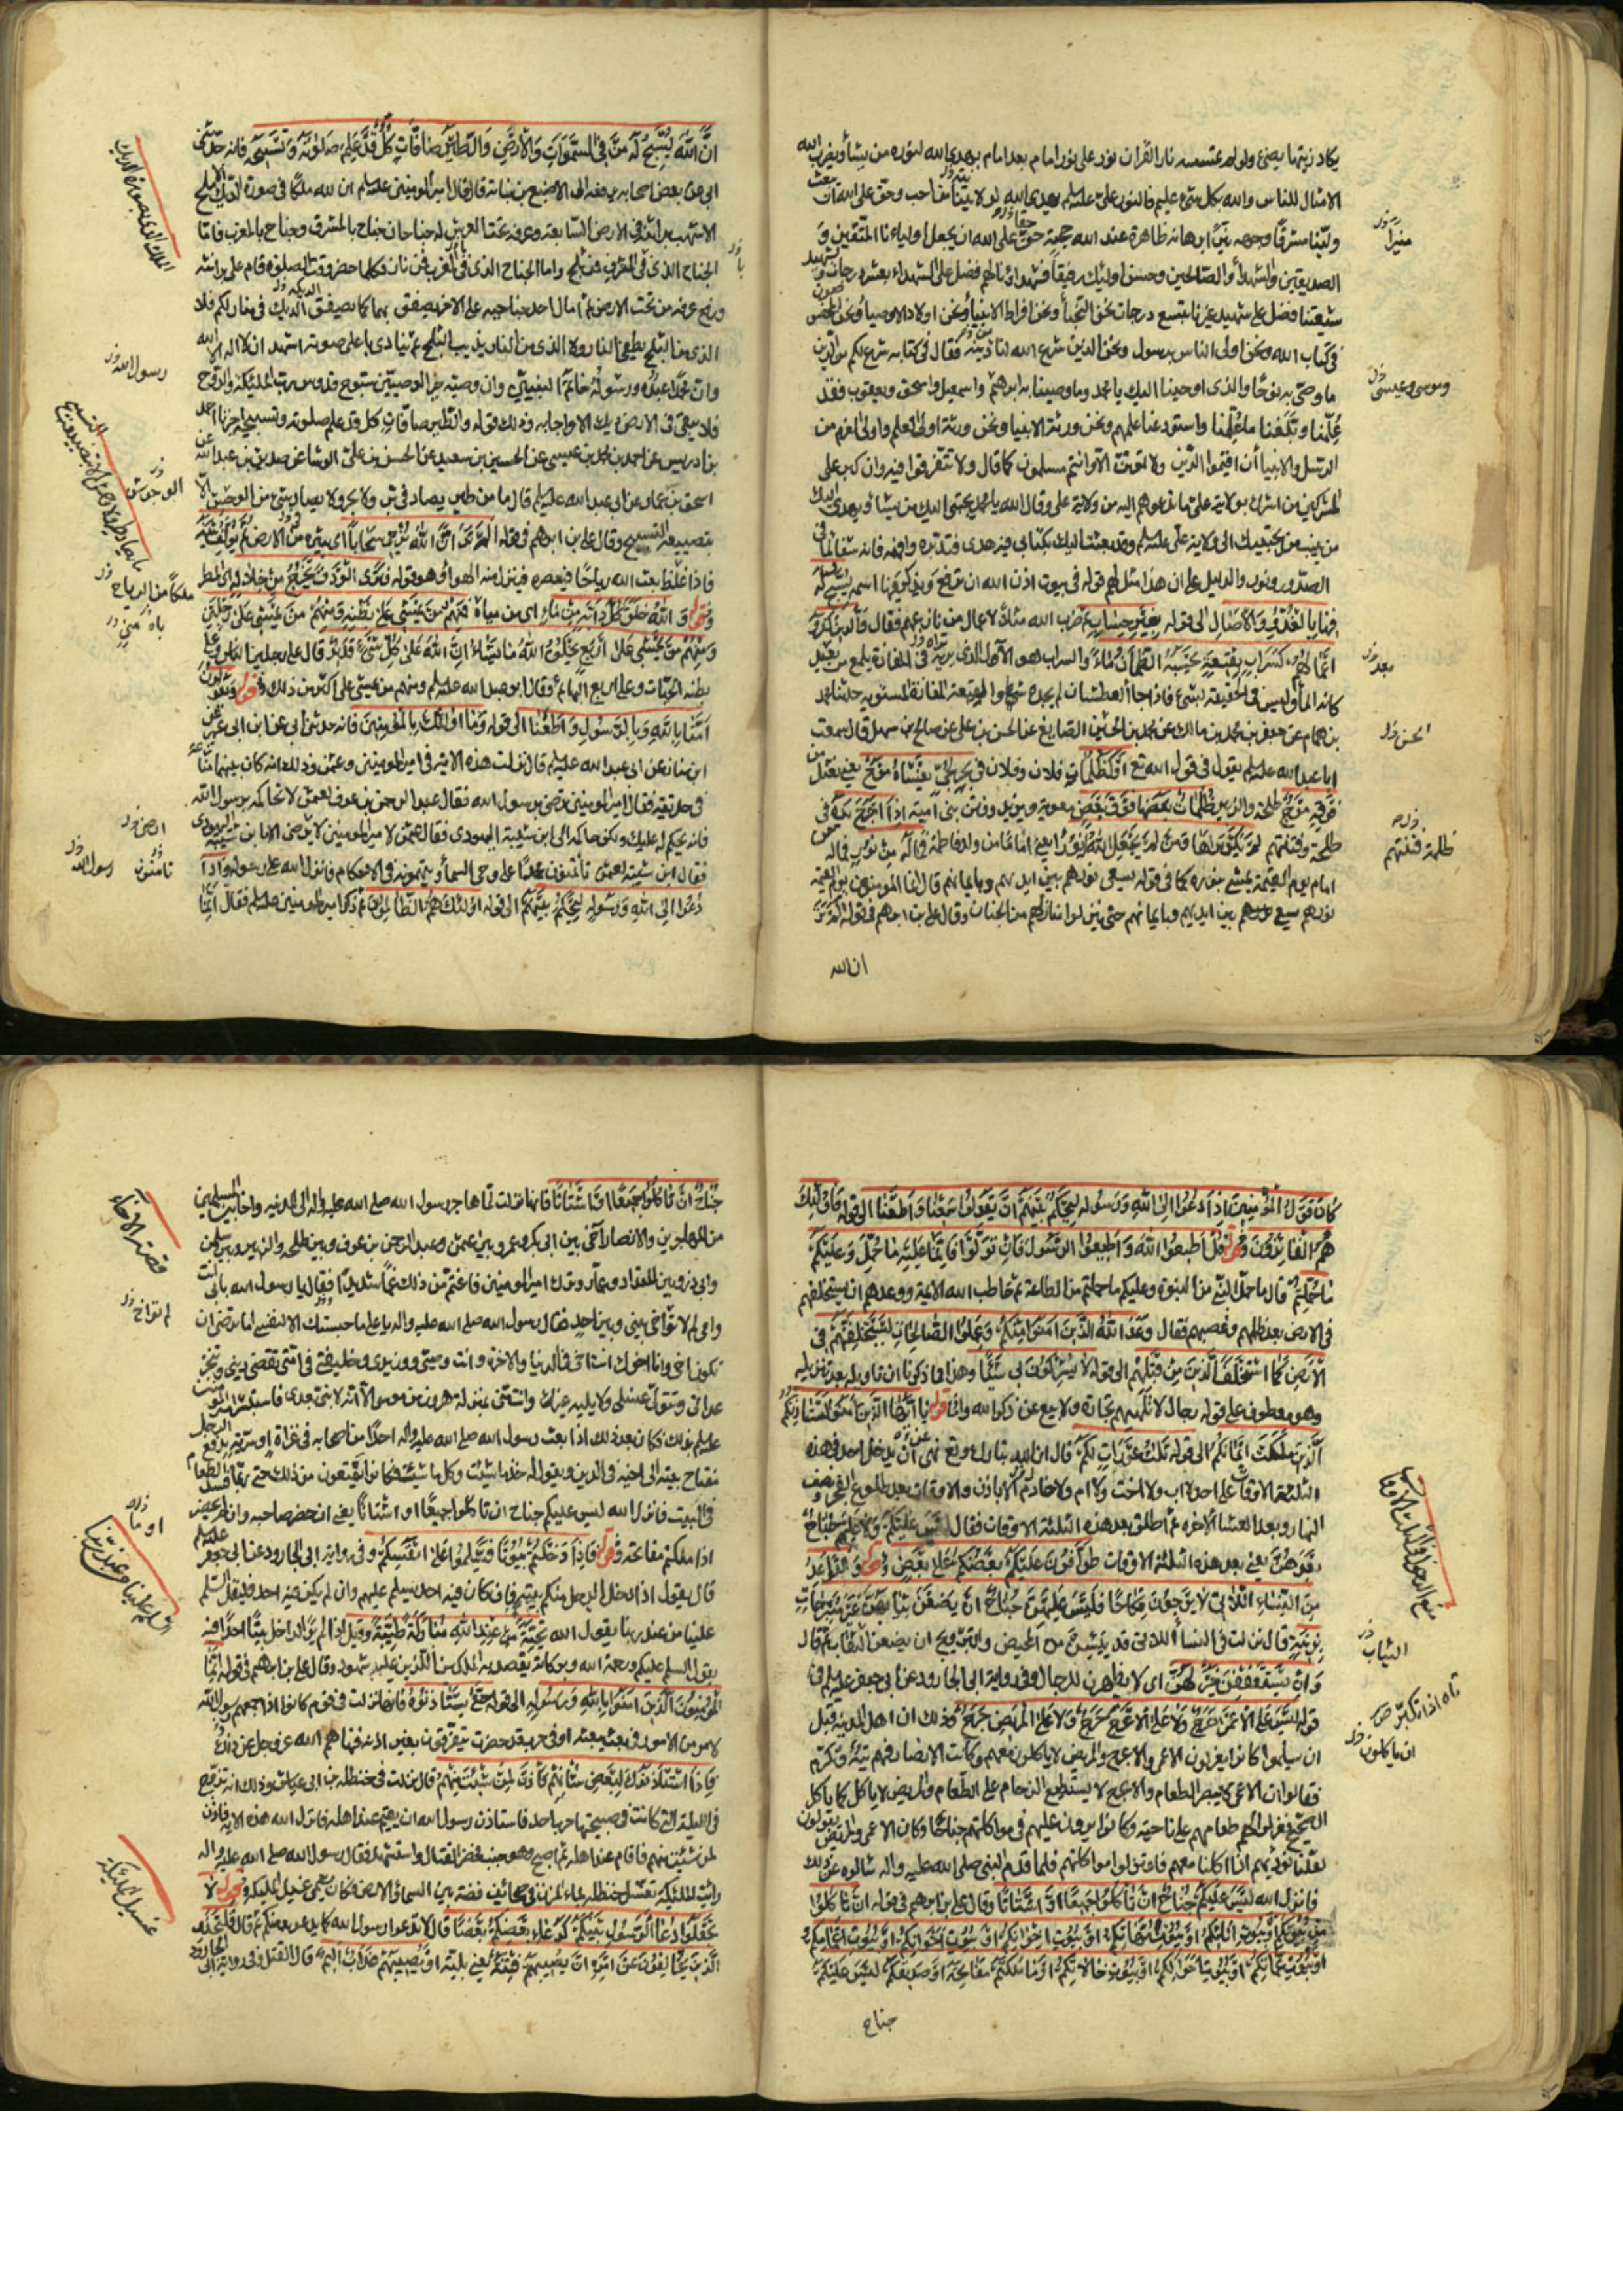 يكاد زيتها يضئ ولو لم تمسسه نار القرآن نور على نور امام بعد امام يهدى الله لنوره من يشأ ويضرب الله
الامثال للناس والله بكل شئ عليم فالنور علي عليه السلم يهدى الله لولايتنا من احب وحق على الله ان يبعث
ولينا مشرقاً وجهه نيراً برهانه ظاهرة عند الله حجته حق على الله ان يجعل اولياءنا المتقين و
الصديقين والشهدأ والصالحين وحسن اولئك رفيقاً فشهداؤنا لهم فضل على الشهداء بعشر درجات و
شيعتنا فضل على شهيد غيرنا بتسع درجات نحن النجبأ ونحن افراط الانبيأ ونحن اولاد الاوصيأ ونحن المخصوصون
فى كتاب الله ونحن اولى الناس برسول ونحن الذين شرع الله لنا دينه فقال فى كتابه شرع لكم من الدين
ما وصّى به نوحًا والذى اوحينا اليك يا محمد وما وصينا به ابرهيم واسمعيل واسحق ويعقوب فقد
عُلّمنا وبلّغنا ما عُلّمنا واستودعنا علمهم ونحن ورثة الانبيا ونحن ورثة اولى العلم واولى العزم من
الرسل والانبيا أن اقيموا الدّين ولا تموتنّ الّا وانتم مسلمون كما قال ولا تتفرقوا فيه وان كبر على
المشركين من اشرك بولاية على ما تدعوهم اليه من ولاية على وقال الله يا محمد يجتبى اليه من يشا ويهدى اليه
من ينيب من يجيبك الى ولاية على عليه السلم وقد بعثت اليك بكتابٍ فيه هدى فتدبره وافهمه فانه شفا لما فى
الصدور ونور والدليل على ان هذا مثل لهم قوله فى بيوت اذن الله ان ترفع ويذكر فيها اسمه يسبح له
فيها بالغدو والاصال الى قوله بغير حساب ثم ضرب الله مثلاً لاعمال من نازعهم فقال والذين كفروا
اعمالهم كسراب بقيعة يحسبه الظمآن ماء والسراب هو الآل الذى تريه فى المفازة يلمع من بعيد
كانه المأ وليس فى الحقيقة بشئ فاذا جاء العطشان لم يجده شيئا والقيعة المفازة المستويه حدثنا محمد
بن همام عن جعفر بن محمد بن مالك عن محمد بن الحسين الصايغ عن الحسن بن على عن صالح بن سهل قال سمعت
ابا عبد الله عليه السلم يقول فى قول الله تع او كظلمات فلان وفلان فى بحر لجى يغشاه موج يعنى نعثل من
فوقه موج طلحة والزبير ظلمات بعضها فوق بعض معوية ويزيد وفتن بنى امية اذا اخرج يده فى
ظلمة فتنتهم لم يكد يراها ومن لم يجعل الله له نورا يعنى اماما من ولد فاطمة فما له من نور فما له من
امام يوم القيمة يمشى بنوره كما فى قوله يسعى نورهم بين ايديهم وبايمانهم قال انما المؤمنون يوم القيمة
نورهم يسعى بين ايديهم وبايمانهم حتى ينزلوا منازلهم من الجنان وقال على بن ابرهيم فى قوله الم تر
ان الله
منيراً
وموسى وعيسى
بعيد
الحسن
ظلمة فتنتهم
انّ الله يسبّح له من فى السموات والارض والطير صافّات كلّ قد علم صلوته وتسبيحه فانه حدثنى
ابى عن بعض اصحابه يرفعه الى الاصبغ بن نباتة قال قال امير المومنين عليه السلم ان لله ملكا فى صورة الديك الاملح
الاشهب براثنه فى الارض السابعة وعرفه تحت العرش له جناحان جناح بالمشرق وجناح بالمغرب فامّا
الجناح الذى فى المشرق فمن ثلج واما الجناح الذى فى المغرب فمن نار فكلما حضر وقت الصلوة قام على براثنه
ورفع عرفه من تحت العرش ثم امال احد جناحيه على الاخر يصفق بهما كما يصفق الديك فى منازلكم فلا
الذى من الثلج يطفى النار ولا الذى من النار يذيب الثلج ثم ينادى باعلى صوته اشهد ان لا اله الا الله
وان محمّداً عبده ورسوله خاتم النبيين وان وصيه خير الوصيين سبوح قدوس رب الملئكة والروح
فلا يبقى فى الارض ديك الا واجابه وذلك قوله والطير صافات كل قد علم صلوته وتسبيحه اخبرنا احمد
بن ادريس عن احمد بن محمد بن عيسى عن الحسين بن سعيد عن الحسن بن على الوشا عن صديق بن عبد الله عن
اسحق بن عمار عن ابى عبد الله عليه السلم قال ما من طير يصاد فى بر ولا بحر ولا يصاد شئ من الوحش الّا
بتضييعه التسبيح وقال على بن ابرهيم فى قوله الم تر ان الله يزجى سحابا اى يثيره من الارض ثم يؤلف بينه
فاذا غلظ بعث الله رياحًا فيعصره فينزل منه الماء وهو قوله فترى الودق يخرج من خلاله اى المطر
وقوله والله خلق كل دابة من ماء اى من مياه فمنهم من يمشى على بطنه ومنهم من يمشى على رجلين
ومنهم من يمشى على اربع يخلق الله ما يشاء ان الله على كل شئ قدير قال على رجلين الناس وعلى
بطنه الحيّات وعلى اربع البهائم وقال ابو عبد الله عليه السلم ومنهم من يمشى على اكثر من ذلك وقوله ويقولون
امنّا بالله وبالرسول واطعنا الى قوله وما اولئك بالمؤمنين فانه حدثنى ابى عن ابن ابى عمير عن
ابن سنان عن ابى عبد الله عليه السلم قال نزلت هذه الاية فى امير المومنين وعثمن وذلك انه كان بينهما منازعة
فى حديقة فقال امير المومنين نرضى برسول الله فقال عبد الرحمن بن عوف لعثمن لا تحاكمه برسول الله
فانه يحكم له عليك ولكن حاكمه الى ابن شيبة اليهودى فقال عثمن لامير المومنين لا نرضى الا بابن شيبة اليهودى
فقال ابن شيبة لعثمن تأمنون محمّدا على وحى السمأ وتتهمونه فى الاحكام فانزل الله على رسوله واذا
دعوا الى الله ورسوله ليحكم بينهم الى قوله اولئك هم الظالمون ثم ذكر امير المومنين عليه السلم فقال انما
الملك الذى بصورة الديك
رسول الله
الوحوش
ملكا من الرياح
ارضى
تامنون
رسول الله
كان قول المؤمنين اذا دعوا الى الله ورسوله ليحكم بينهم ان يقولوا سمعنا واطعنا الى قوله فاولئك
هم الفائزون وقوله قل اطيعوا الله واطيعوا الرسول فان تولّوا فانّما عليه ما حمّل وعليكم
ما حملتم قال ما حمل النبى من النبوة وعليكم ما حملتم من الطاعة ثم خاطب الله الايمة ووعدهم ان يستخلفهم
فى الارض بعد ظلمهم وغصبهم فقال وعد الله الذين امنوا منكم وعملوا الصالحات ليستخلفنهم فى
الارض كما استخلف الذين من قبلهم الى قوله لا يشركون بى شيئًا وهذا مما ذكرنا ان تاويله بعد تنزيله
وهو معطوف على قوله رجال لا تلهيهم تجارة ولا بيع عن ذكر الله واما قوله يا ايّها الذين امنوا ليستاذنكم
الذين ملكت ايمانكم الى قوله ثلث عورات لكم قال ان الله تبارك وتع نهى ان يدخل احد فى هذه
الثلثة الاوقات على احد لا اب ولا اخت ولا ام ولا خادم الا باذن والاوقات بعد طلوع الفجر ونصف
النهار وبعد العشا الاخرة ثم اطلق بعد هذه الثلثة الاوقات فقال ليس عليكم ولا عليهم جناح
بعدهن يعنى بعد هذه الثلثة الاوقات طوافون عليكم بعضكم على بعض وقوله والقواعد
من النساء اللاتى لا يرجون نكاحًا فليس عليهن جناح ان يضعن ثيابهن غير متبرجات
بزينة قال نزلت فى النسأ اللاتى قد يئسن من المحيض والتزويج ان يضعن النقاب ثم قال
وان يستعففن خير لهن اى لا يظهرن للرجال وفى رواية ابى الجارود عن ابى جعفر عليه السلم فى
قوله ليس على الاعمى حرج ولا على الاعرج حرج ولا على المريض حرج وذلك ان اهل المدينة قبل
ان يسلموا كانوا يعزلون الاعمى والاعرج والمريض لا ياكلون معهم وكانت الانصار فيهم تيه وتكرم
فقالوا ان الاعمى لا يبصر الطعام والاعرج لا يستطيع الزحام على الطعام والمريض لا ياكل كما ياكل
الصحيح فعزلوا لهم طعامهم على ناحية وكانوا يرون عليهم فى مواكلتهم جناحًا وكان الاعمى والمريض يقولون
لعلّنا نوذيهم اذا اكلنا معهم فاعتزلوا مواكلتهم فلما قدم النبى صلى الله عليه واله سالوه عن ذلك
فانزل الله ليس عليكم جناح ان تأكلوا جميعا او اشتاتا وقال على بن ابرهيم فى قوله ان تاكلوا
من بيوتكم او بيوت ابائكم او بيوت امهاتكم او بيوت اخوانكم او بيوت اخواتكم او بيوت اعمامكم
او بيوت عماتكم او بيوت اخوالكم او بيوت خالاتكم او ما ملكتم مفاتحه او صديقكم ليس عليكم
جناح
الثياب
ان ياكلون
جناح ان تاكلوا جميعا او اشتاتا فانها نزلت لما هاجر رسول الله صلى الله عليه واله الى المدينة واخا بين المسلمين
من المهاجرين والانصار آخى بين ابى بكر وعمر وبين عثمن وعبد الرحمن بن عوف وبين طلحة والزبير وبين سلمن
وابى ذر وبين المقداد وعمار وترك امير المومنين فاغتم من ذلك غمّا شديدًا فقال يا رسول الله بابى انت
وامى لم لا تواخى بينى وبين احد فقال رسول الله صلى الله عليه واله يا على ما حبستك الا لنفسى اما ترضى ان
تكون اخى وانا اخوك انت اخى فى الدنيا والاخرة وانت وصيى ووزيرى وخليفتى فى امتى تقضى دينى وتنجز
عداتى وتتولى غسلى ولا يليه غيرك وانت منى بمنزلة هرون من موسى الا انه لا نبى بعدى فاستبشر امير المومنين
عليه السلم بذلك فكان بعد ذلك اذا بعث رسول الله صلى الله عليه واله احدًا من اصحابه فى غزاة او سرية يدفع الرجل
مفتاح بيته الى اخيه فى الدين ويقول له خذ ما شئت وكل ما شئت فكانوا يمتنعون من ذلك حتى ربما فسد الطعام
فى البيت فانزل الله ليس عليكم جناح ان تاكلوا جميعًا او اشتاتا يعنى ان حضر صاحبه وان لم يحضر
اذا ملكتم مفاتحه وقوله فاذا دخلتم بيوتا فسلموا على انفسكم وفى رواية ابى الجارود عن ابى جعفر عليه السلم
قال يقول اذا دخل الرجل منكم بيته فان كان فيه احد يسلم عليهم وان لم يكن فيه احد فليقل السلم
علينا من عند ربنا يقول الله تحية من عند الله مباركة طيبة وقيل اذا لم ير الداخل بيتا احدًا فيه
يقول السلم عليكم ورحمة الله وبركاته يقصد به الملكين الذين عليه شهود وقال على بن ابرهيم فى قوله انما
المؤمنون الذين امنوا بالله ورسوله الى قوله حتى يستأذنوه فانها نزلت فى قوم كانوا اذا جمعهم رسول الله
لامر من الامور فى بعث يبعثه او فى حرب قد حضرت يتفرقون بغير اذنه فنهاهم الله عز وجل عن ذلك
فاذا استأذنوك لبعض شأنهم فأذن لمن شئت منهم قال نزلت فى حنظلة بن ابى عياش وذلك انه تزوج
فى الليلة التى كانت فى صبيحتها حرب احد فاستاذن رسول الله ان يقيم عند اهله فانزل الله هذه الاية فاذن
لمن شئت منهم فاقام عند اهله ثم اصبح وهو جنب فحضر القتال واستشهد فقال رسول الله صلى الله عليه واله
رايت الملئكة تغسل حنظلة بماء المزن فى صحائف فضة بين السمأ والارض فكان يسمى غسيل الملئكة وقوله لا
تجعلوا دعاء الرسول بينكم كدعاء بعضكم بعضا قال لا تدعوا رسول الله كما يدعو بعضكم بعضا ثم قال فليحذر
الذين يخالفون عن امره ان تصيبهم فتنة يعنى بلية او يصيبهم عذاب اليم قال القتل وفى رواية ابى الجارود
قصة الاخاء
لم تواخ
السلم علينا من عند ربنا
غسيل الملئكة